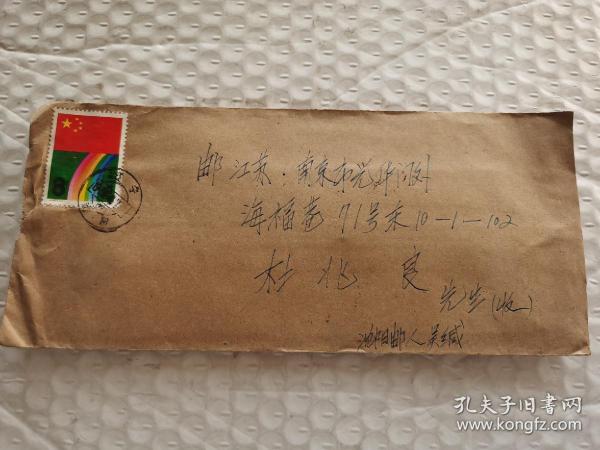 邮 江苏·南京市光华门外
海福巷71号东10-1-102
杜兆良
先生(收)
沈阳邮人吴缄
8
孔夫子旧书网
www.kongfz.com